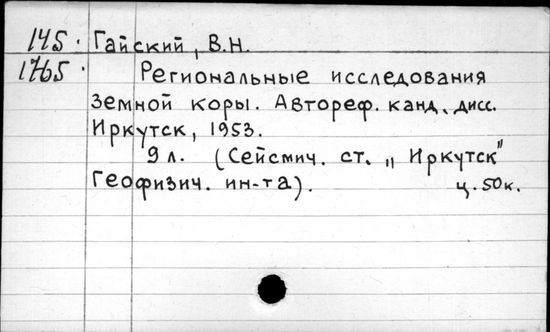 145. Гайский, В.Н.
1765. Региональные исследования
Земной коры. Автореф. канд. дисс.
Иркутск, 1953.
9 л. (Сейсмич. ст. „Иркутск"
Геофизич. ин-та). ц. 50 к.